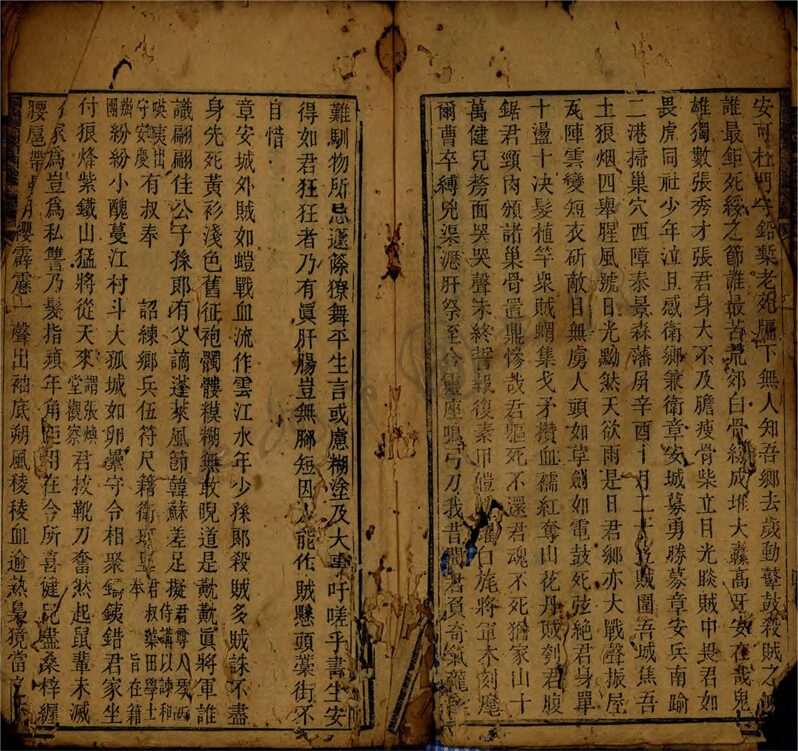 安可杜門守鉛槧老死牖下無人知吾鄉去歲動鼙鼓殺賊之
誰最鉅死綏之節誰最苦荒郊白骨成堆大纛高牙安在哉鬼
雄獨數張秀才張君身大不及膽瘦骨柴立目光睒賊中畏君如
畏虎同社少年泣且感衛鄉兼衛章安城募勇勝募章安兵南踰
二港掃巢穴西障泰景森藩屏辛酉十月二十賊圍吾城焦吾
土狼烟四舉腥風號日光黝然天欲雨是日君鄉亦大戰聲振屋
瓦陣雲變短衣斫敵目無虜人頭如草劍如電鼓死弦絕君身單
十盪十決髮植竿衆賊蝟集戈矛攢血襦紅奪山花丹賊刳君腹
鋸君頸肉頒諾巢骨置鼎慘哉君軀死不還君魂不死猶家山十
萬健兒剺面哭哭聲未終誓報復素甲白旄將軍木刻麾
爾曹卒縛兇渠瀝肝祭至今靈座鳴弓刀我昔聞君負奇氣龍
難馴物所忌蘧蒢獠舞平生言或慮糊塗及大事吁嗟乎書生安
得如君狂狂者乃有眞肝腸豈無腳短因人能作賊懸頭藁街不
自惜
章安城外賊如螘戰血流作雲江水年少孫郞殺賊多賊誅不盡
身先死黃衫淺色舊征袍髑髏糢糊無敢睨道是歁歁眞將軍誰
識翩翩佳公子孫郞有父謫蓬萊風節韓蘇差足擬君尊人琴西侍講以諫和
㗸夷出守安慶有叔奉 詔練鄉兵伍符尺籍衛君叔蕖田學士奉 旨在籍
團紛紛小醜蔓江村斗大孤城如卵壘守合相聚錯君家坐
付狼烽紫鐵山猛將從天來謂張煥堂觀察君拔靴刀奮然起鼠輩未滅
家爲豈爲私讐乃髮指蘋年角距用在今所喜健兒盡桑梓縨
腰扈帶明櫻霹靂一聲出袖底朔風稜稜血逾熱梟獍當之